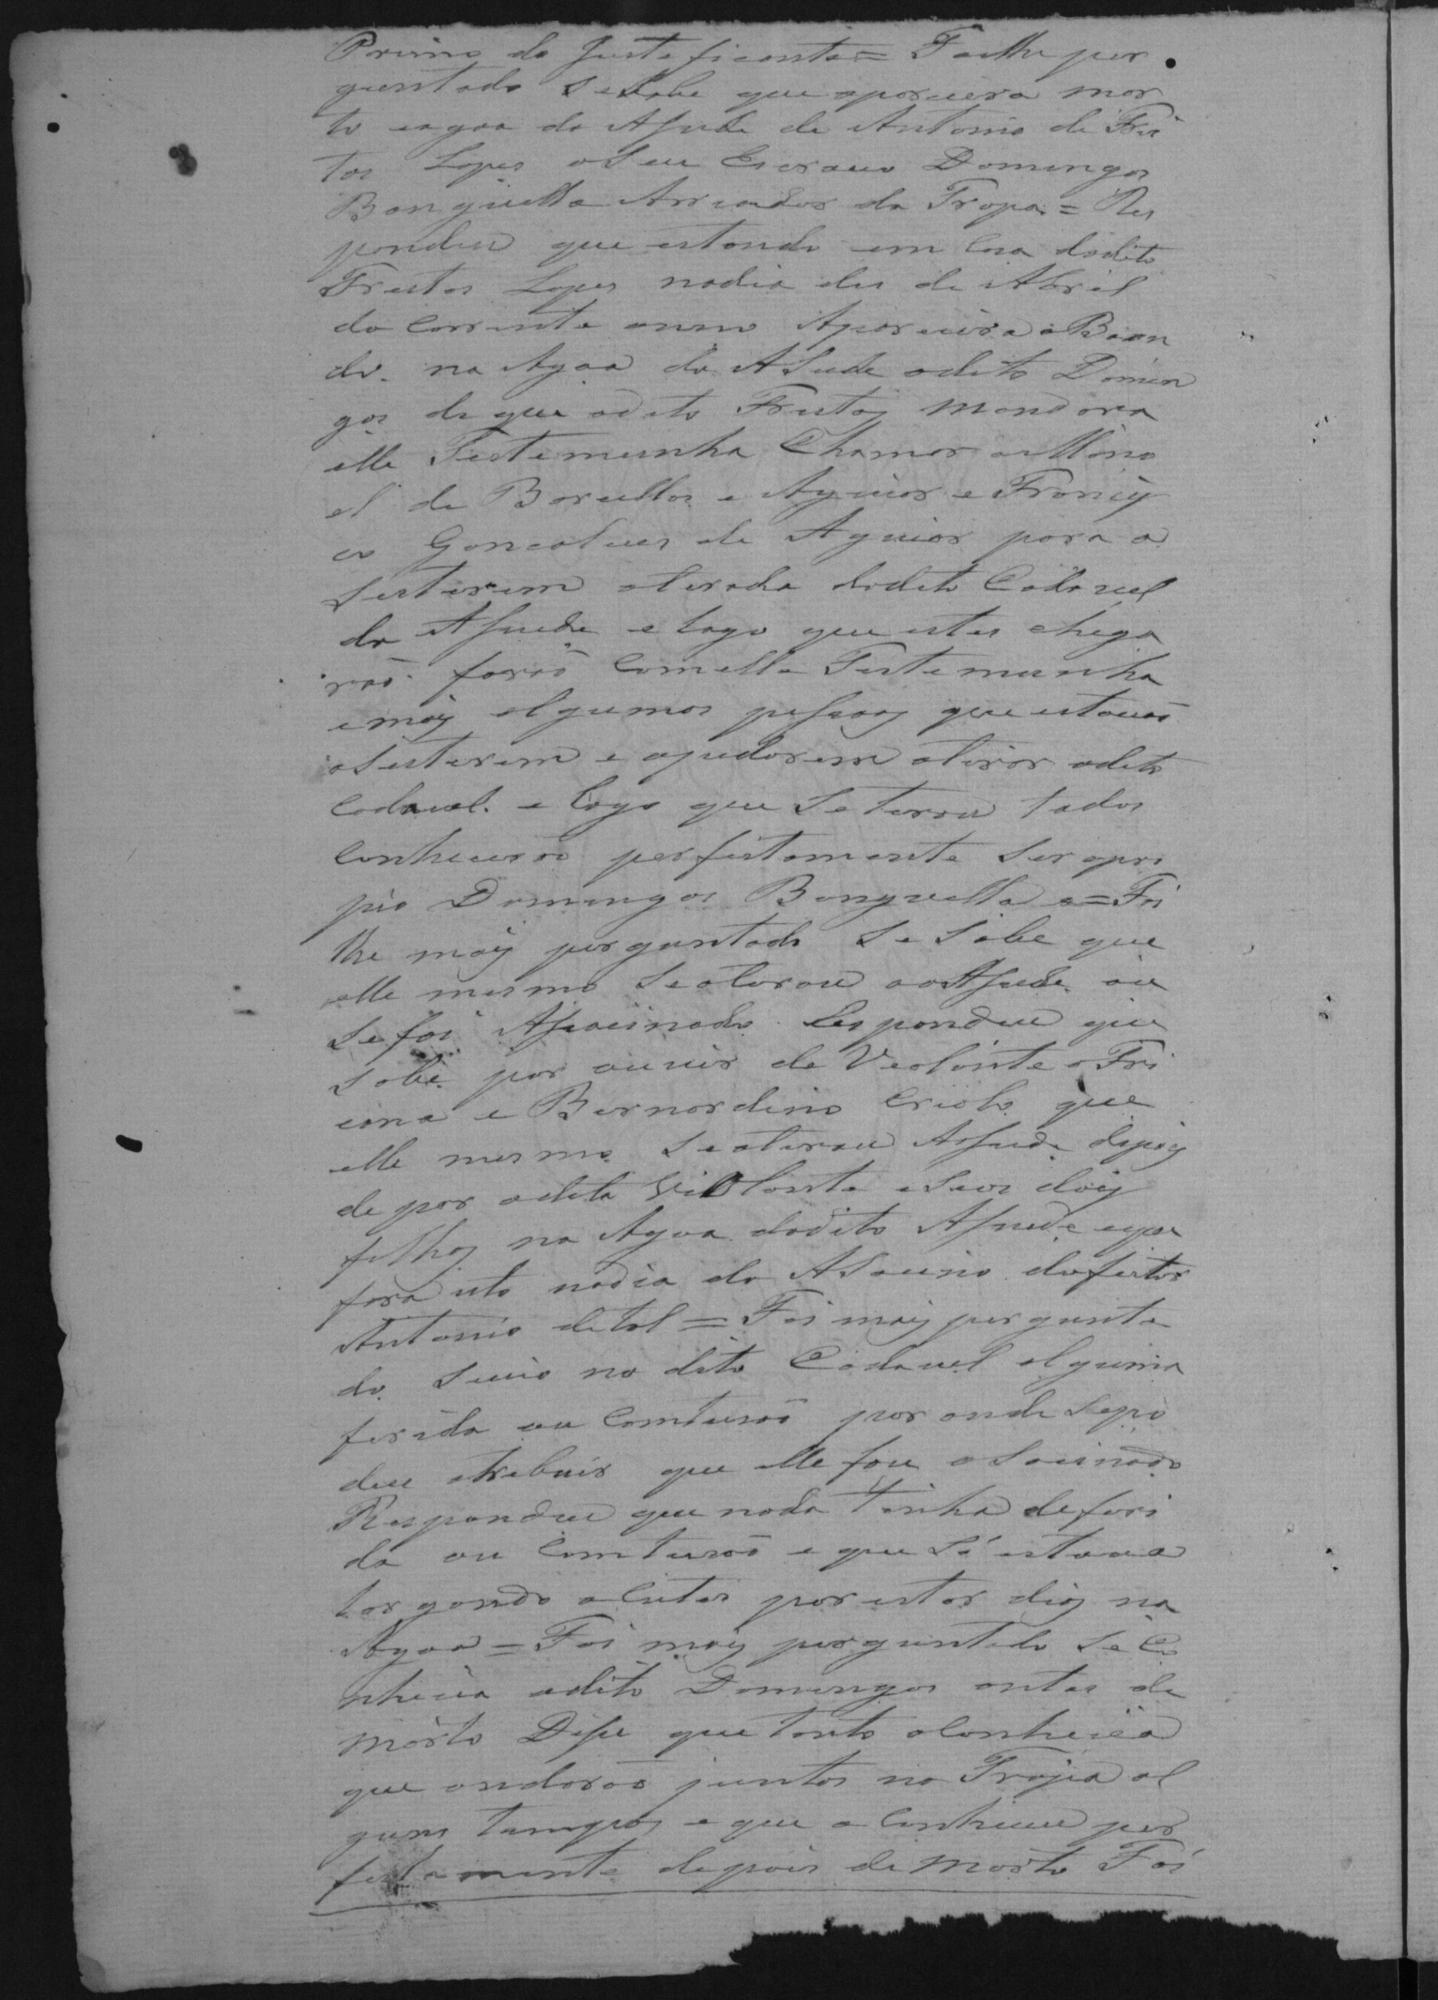 Primo do Justeficante = Foilhe per
guntado se Sabe que aparecera mor
to nagoa do Asude de Antonio de Frei
tas Lopes o Seu Escravo Domingos
Banguella Arriador da Tropa = Res
pondeu que estando em Casa dodito
Freitas Lopes nodia des de Abril
do Corrente anno Aparecera aBoian
do na Agoa do ASude odito Domin
gos de que odito Freitas mandara
elle Testemunha Chamar aMano
el de Barcellos e Aguiar e Francis
co Goncalves de Aguiar para a
sisterem atirada dodito Cadavel
do Asude e logo que estes chega
rão forão Comelle Testemunha
emais algumas pesoas que estavão
asisterem e ajudarem atirar odito
Cadavel e logo que Setirou todos
Conhecerão perfeitamente Ser opro
pio Domingos Banguella = Foi
lhe mais perguntado Se Sabe que
elle mesmo Seatirou aoAsude ou
Sefoi Asacinado Respondeu que
Sabe por ouvir de Veolante aFri
cana e Bernardino Criolo que
elle mesmo Seatirou Asude depois
de por adita Violante eSeus dois
filhos na Agoa dodito Asude eque
fora isto nodia do ASacino dofeitor
Antonio detal = Foi mais pergunta
do Sevio no dito Cadavel alguma
ferida ou Contusão por onde Sepo
dece atrebuir que elle fou aSacinado
Respondeu que nada tinha deferi
da ou Contusão e que Só estava
largando aCutes porestar dias na
Agoa = Foi mais perguntado Se Co
nhecia odito Domingos antes de
morto Dise que tanto oConhecia
que andarão juntos na Tropa al
guns tempos e que o Conheceu per
feitamente depois de morto Foi